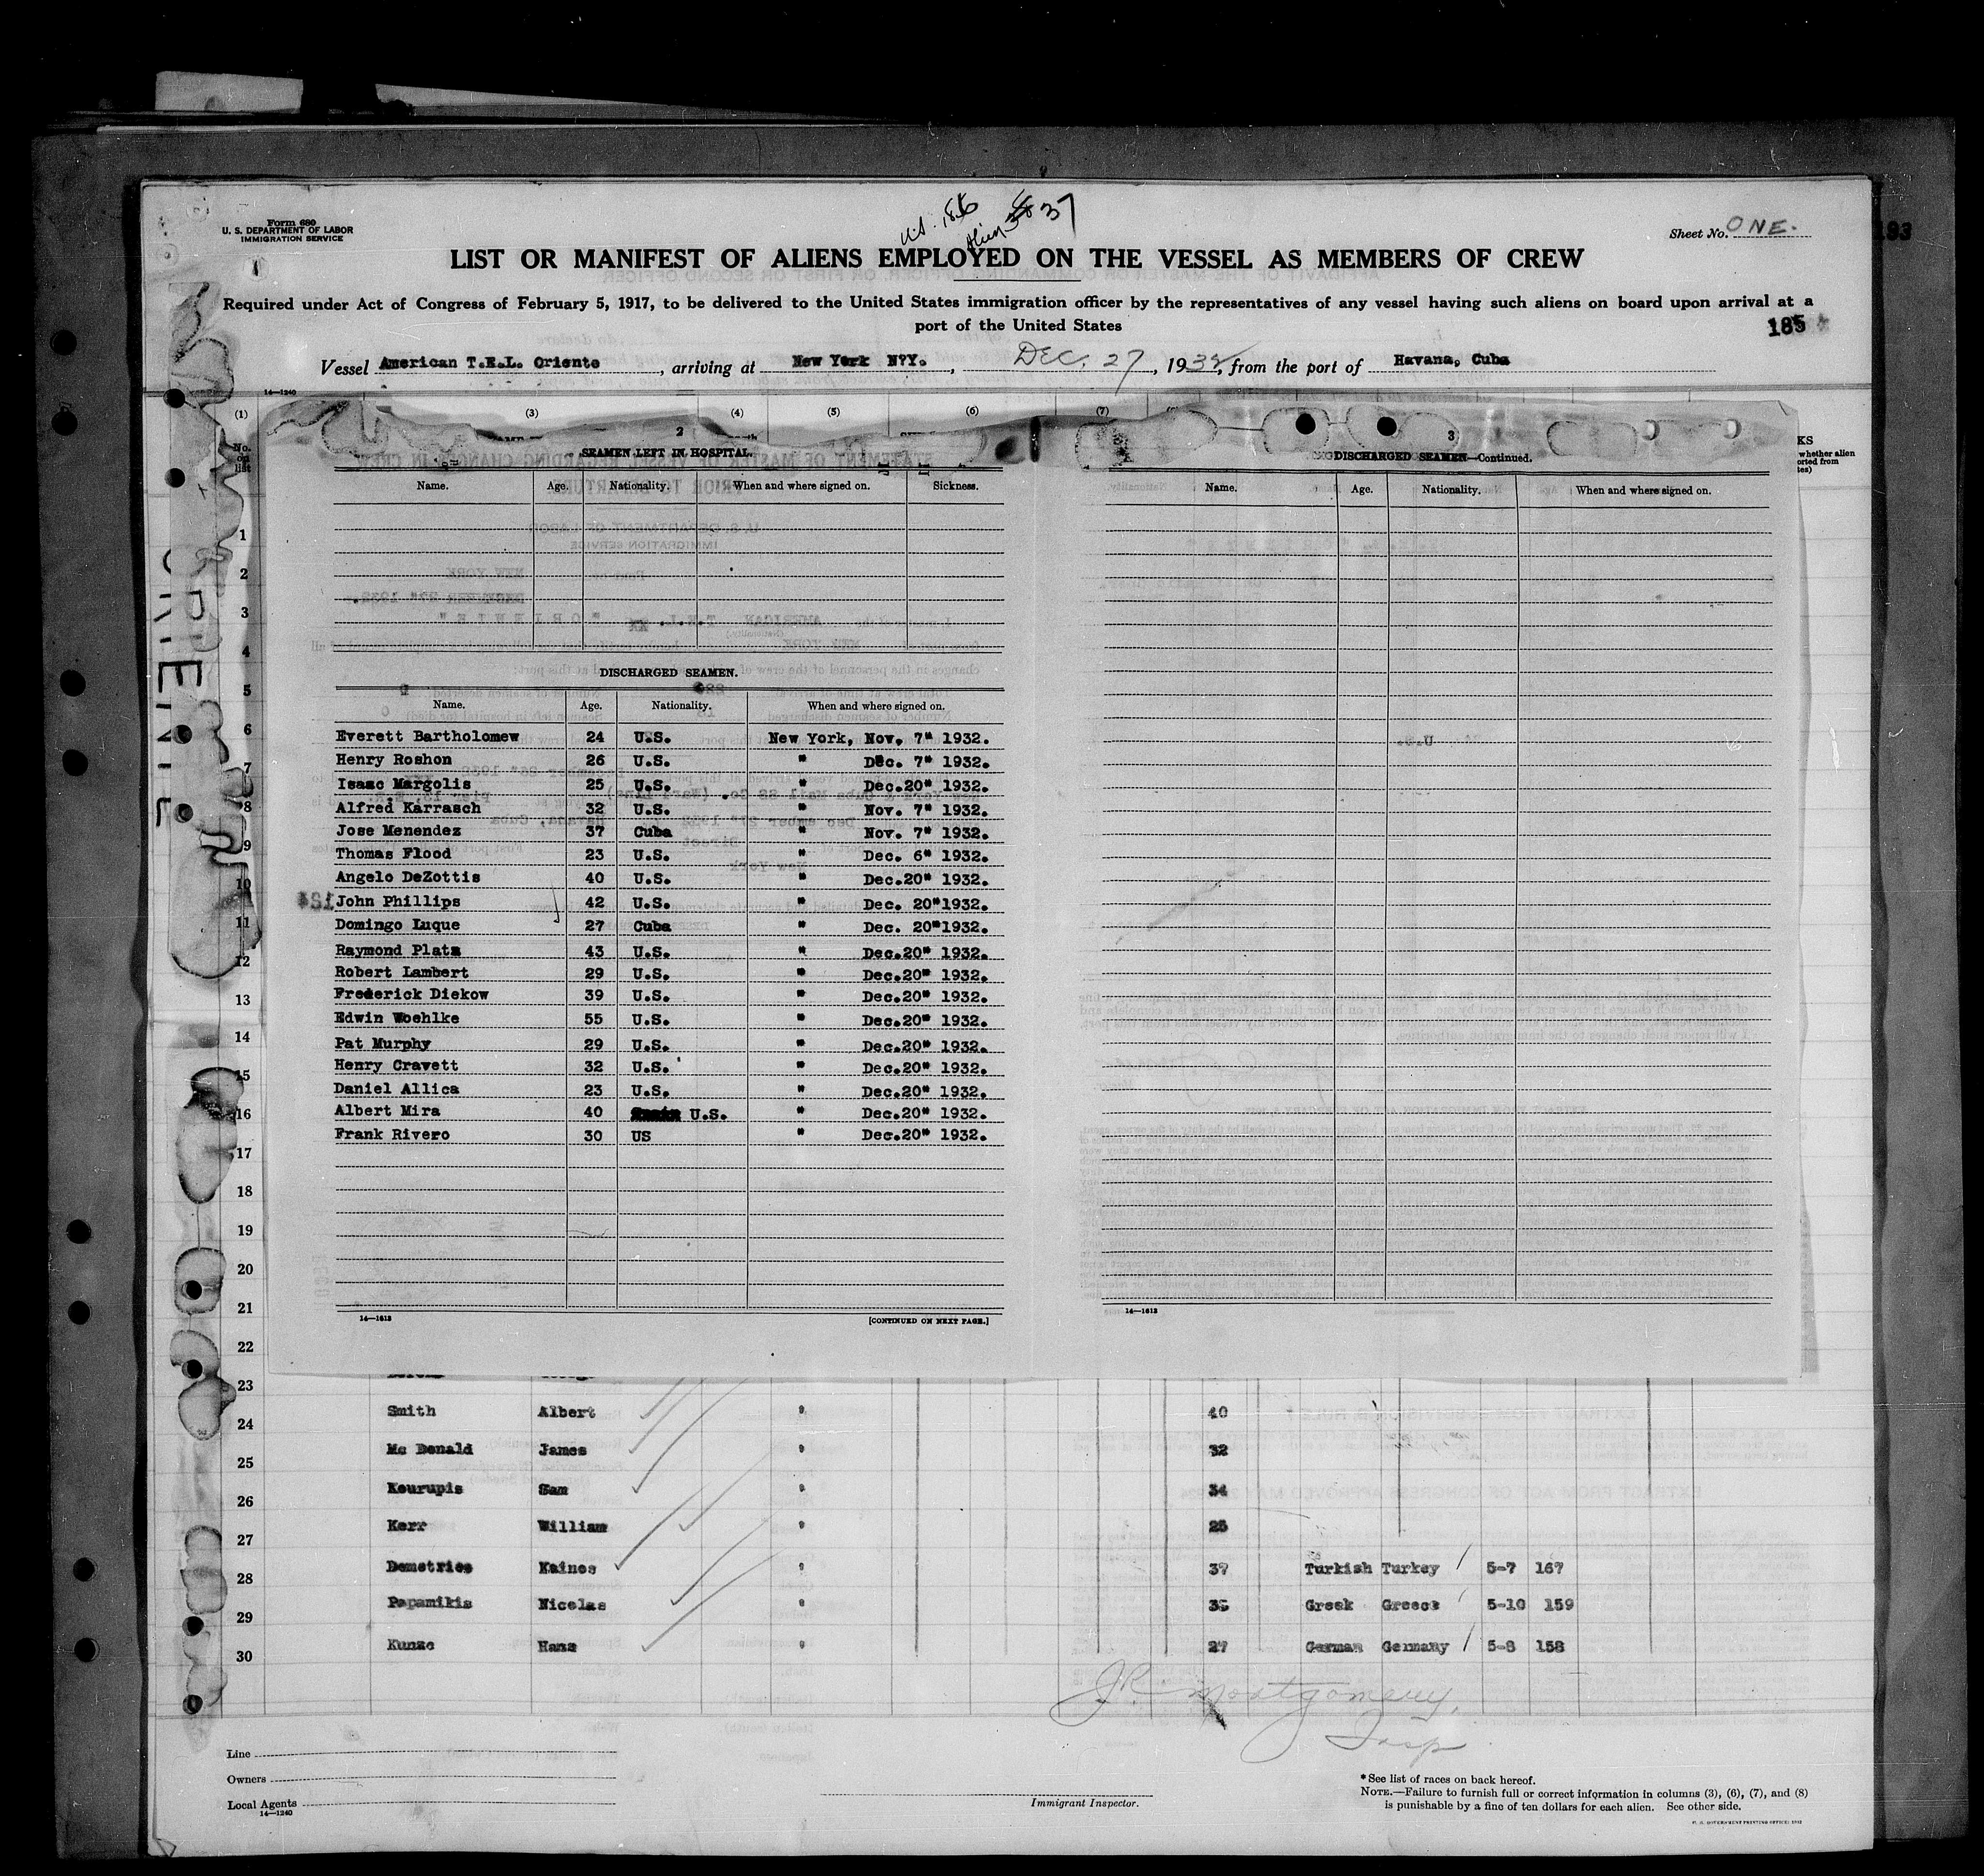 Form 680
U. S. DEPARTMENT OF LABOR
IMMIGRATION SERVICE
U.S. 186
Alien 37
Sheet No. ONE.
193
LIST OR MANIFEST OF ALIENS EMPLOYED ON THE VESSEL AS MEMBERS OF CREW
Required under Act of Congress of February 5, 1917, to be delivered to the United States immigration officer by the representatives of any vessel having such aliens on board upon arrival at a
port of the United States
185
Vessel American T.E.L. Oriente, arriving at New York N?Y., DEC. 27, 1932, from the port of Havana, Cuba
14—1240
(1) (3) (4) (5) (6) (7)
No. on list
KS
whether alien
orted from
tes)
ORIENTE
2
SEAMEN LEFT IN HOSPITAL.
Name. Age. Nationality. When and where signed on. Sickness.
DISCHARGED SEAMEN.
Name. Age. Nationality. When and where signed on.
Everett Bartholomew 24 U.S. New York, Nov. 7" 1932.
Henry Roshon 26 U.S. " Dec. 7" 1932.
Isaac Margolis 25 U.S. " Dec.20" 1932.
Alfred Karrasch 32 U.S. " Nov. 7" 1932.
Jose Menendez 37 Cuba " Nov. 7" 1932.
Thomas Flood 23 U.S. " Dec. 6" 1932.
Angelo DeZottis 40 U.S. " Dec.20" 1932.
184 John Phillips 42 U.S. " Dec. 20"1932.
Domingo Luque 27 Cuba " Dec. 20"1932.
Raymond Plata 43 U.S. " Dec.20" 1932.
Robert Lambert 29 U.S. " Dec.20" 1932.
Frederick Diekow 39 U.S. " Dec.20" 1932.
Edwin Woehlke 55 U.S. " Dec.20" 1932.
Pat Murphy 29 U.S. " Dec.20" 1932.
Henry Cravett 32 U.S. " Dec.20" 1932.
Daniel Allica 23 U.S. " Dec.20" 1932.
Albert Mira 40 U.S. " Dec.20" 1932.
Frank Rivero 30 US " Dec.20" 1932.
14—1613
[CONTINUED ON NEXT PAGE.]
3
DISCHARGED SEAMEN—Continued.
Name. Age. Nationality. When and where signed on.
14—1613
1
2
3
4
5
6
7
8
9
10
11
12
13
14
15
16
17
18
19
20
21
22
23
24 Smith Albert " 40
25 Mc Donald James " 32
26 Kourupis Sam " 34
27 Kerr William " 25
28 Demetrios Kainos " 37 Turkish Turkey 5-7 167
29 Papamikis Nicolas " 35 Greek Greece 5-10 159
30 Kunze Hans " 27 German Germany 5-8 158
JR Montgomery,
Insp
Line
Owners
Local Agents
14—1240
Immigrant Inspector.
* See list of races on back hereof.
NOTE.—Failure to furnish full or correct information in columns (3), (6), (7), and (8)
is punishable by a fine of ten dollars for each alien. See other side.
U. S. GOVERNMENT PRINTING OFFICE: 1932